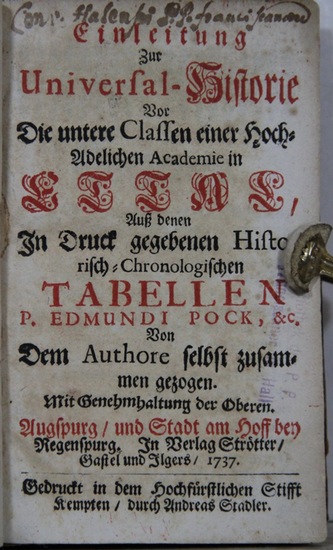 Conv. Halensis P.P. Franciscanorum
Einleitung
Zur
Universal-Historie
Vor
Die untere Classen einer Hoch-
Adelichen Academie in
ETTAL,
Auß denen
In Druck gegebenen Histo-
risch-Chronologischen
TABELLEN
P. EDMUNDI POCK, &c.
Von
Dem Authore selbst zusam-
men gezogen.
Mit Genehmhaltung der Oberen.
Augspurg / und Stadt am Hoff bey
Regenspurg. In Verlag Strötter /
Gastel und Ilgers / 1737.
Gedruckt in dem Hochfürstlichen Stifft
Kempten / durch Andreas Stadler.